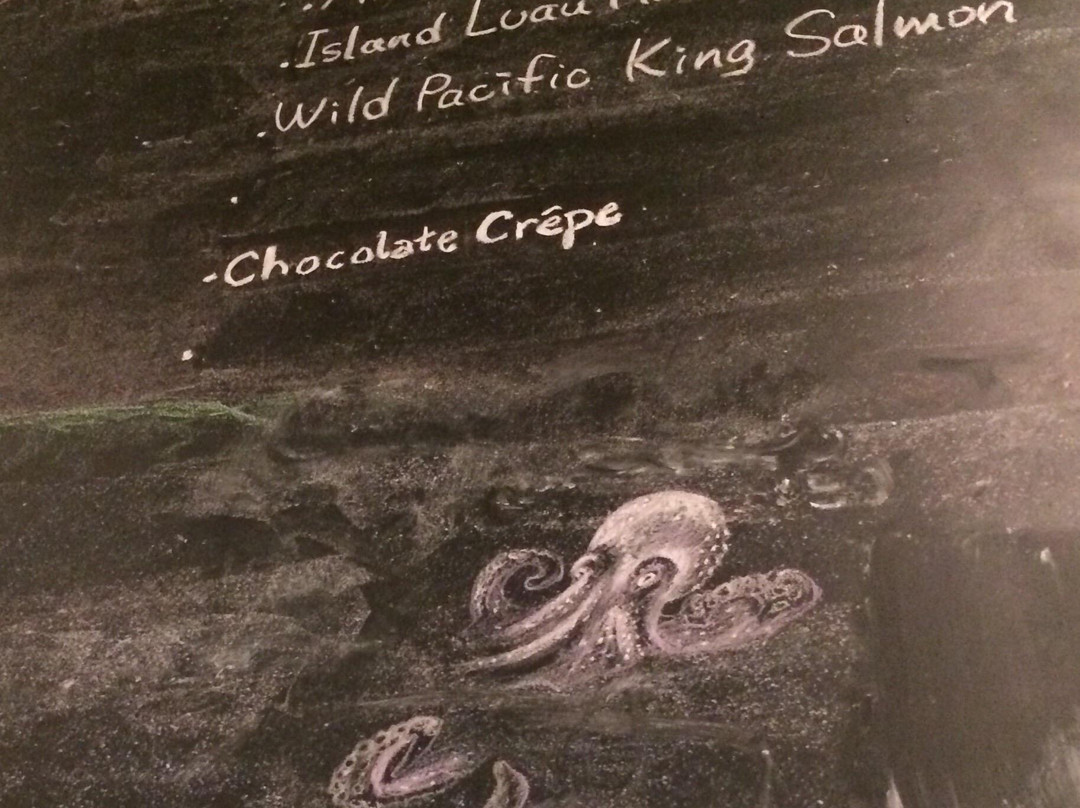 .Island Luau
.Wild Pacific King Salmon
-Chocolate Crêpe